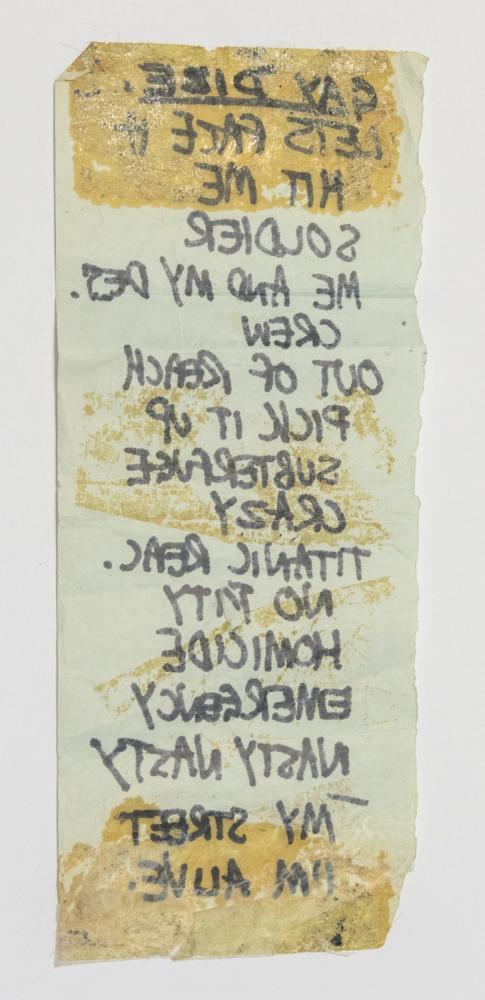 GAY
LETS FACE It
HIT ME
SOLDIER
ME AND MY DES.
CREW
OUT OF REACH
PICK IT UP
SUBTERFUGE
CRAZY
TITANIC REAC.
NO PITY
HOMICIDE
EMERGENCY
NASTY NASTY
MY STREET
I'M ALIVE.